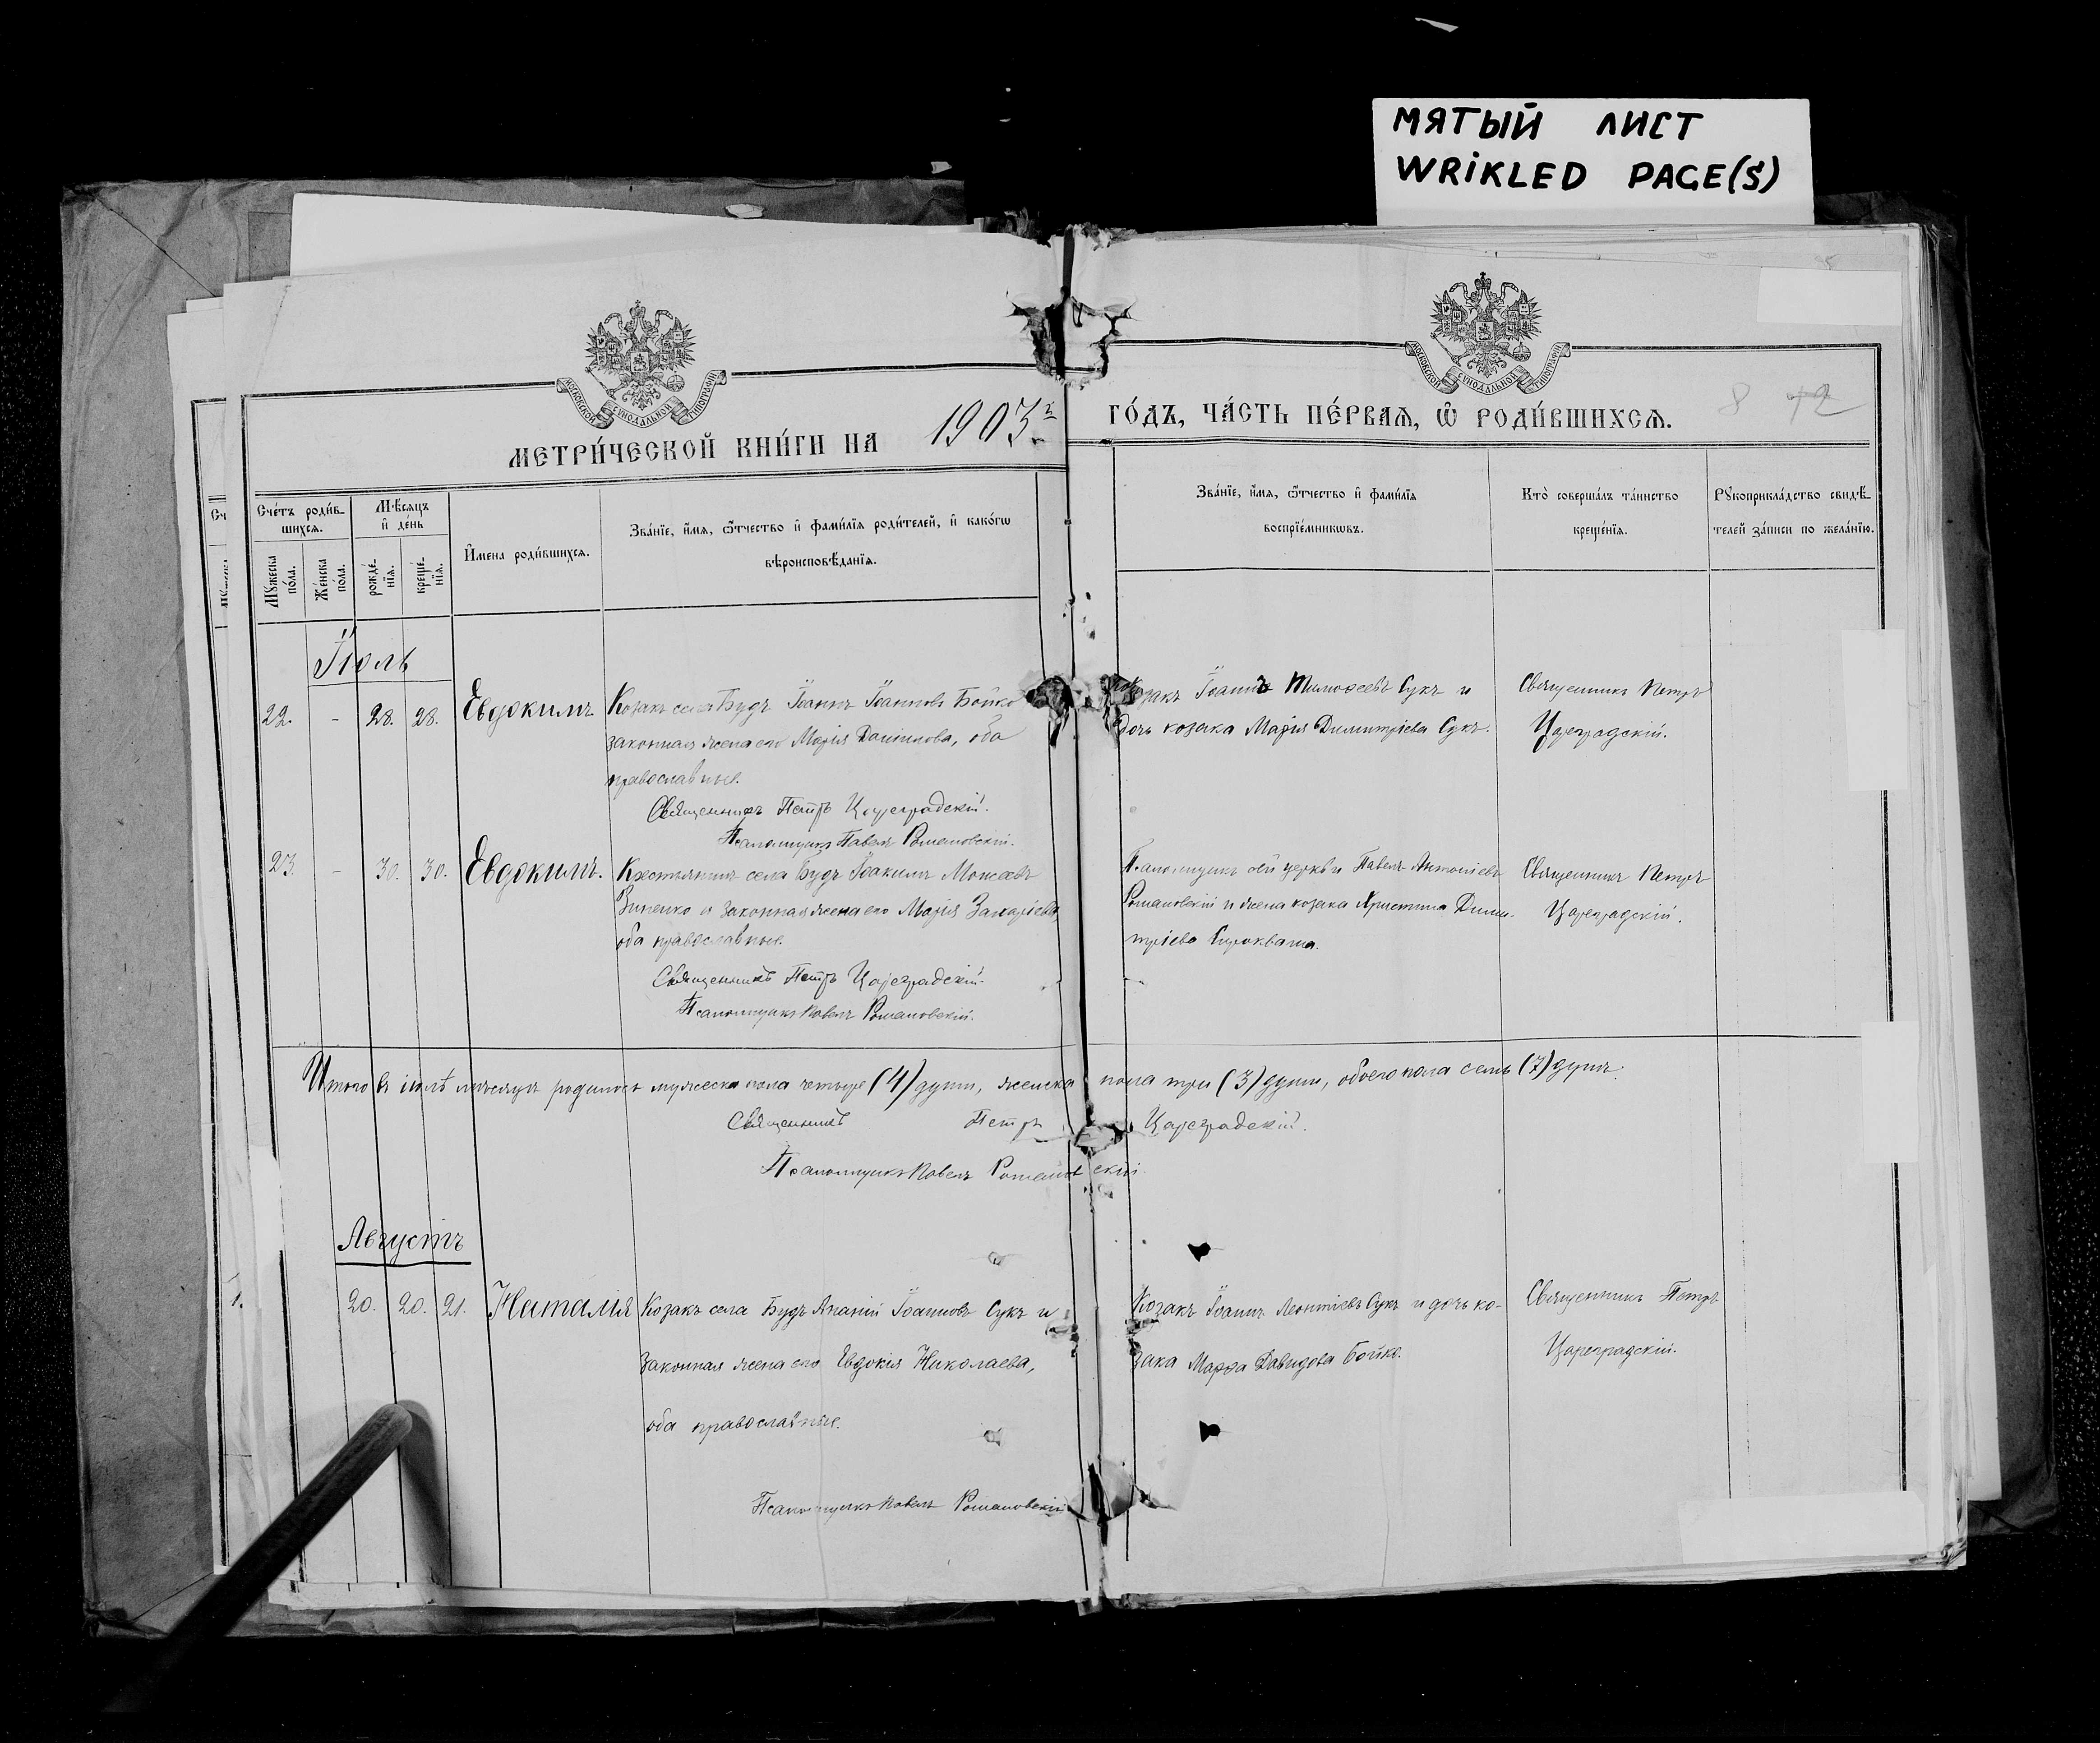 МЯТЫЙ ЛИСТ
WRIKLED PAGE(S)
МОСКОВСКОЙ СѴНОДАЛЬНОЙ ТИПОГРАФІИ
МОСКОВСКОЙ СѴНОДАЛЬНОЙ ТИПОГРАФІИ
МЕТРИ́ЧЕСКОЙ КНИ́ГИ НА 1903 ГО́ДЪ, ЧА́СТЬ ПЕ́РВАЯ, Ѡ РОДИ́ВШИХСѦ.
8 12
Сче́тъ роди́в-
шихся.
Му́жеска по́ла.
Же́нска по́ла.
Мѣ́сяцъ и де́нь
рожде́-
нїя.
креще́-
нїя.
И҆мена роди́вшихся.
Зва́нїе, и҆мя, ѻ҆́тчество и҆ фами́лїя роди́телей, и҆ како́гѡ
вѣроисповѣ́данїя.
Зва́нїе, и҆мя, ѻ҆́тчество и҆ фами́лїя
воспрїе́мникѡвъ.
Кто̀ соверша́лъ та́инство
креще́нїя.
Рꙋкоприкла́дство свидѣ́-
телей за́писи по жела́нїю.
Іюль
22. - 28. 28. Евдокимъ Козакъ села Будъ Іоаннъ Іоанновъ Бойко
законная жена его Марія Даніилова, оба
православные.
Священникъ Петръ Цареградскій.
Псаломщикъ Павелъ Романовскій.
Козакъ Іоаннъ Тимоѳеевъ Сукъ и
дочь козака Марія Димитріева Сукъ.
Священникъ Петръ
Цареградскій.
23. - 30. 30. Евдокимъ. Крестьянинъ села Будъ Іоакимъ Моисеевъ
Зиненко и законная жена его Марія Захаріева,
оба православные.
Священникъ Петръ Цареградскій.
Псаломщикъ Павелъ Романовскій.
Псаломщикъ сей церкви Павелъ Антоніевъ
Романовскій и жена козака Христина Дими-
тріева Сыроквата.
Священникъ Петръ
Цареградскій.
Итого въ іюлѣ мѣсяцѣ родилось мужеска пола четыре (4) души, женска пола три (3) души, обоего пола семь (7) душъ.
Священникъ Петръ Цареградскій.
Псаломщикъ Павелъ Романовскій.
Августъ
20. 20. 21. Наталія Козакъ села Будъ Ананій Іоанновъ Сукъ и
законная жена его Евдокія Николаева,
оба православные.
Псаломщикъ Павелъ Романовскій
Козакъ Іоаннъ Леонтіевъ Сукъ и дочь ко-
зака Марфа Давидова Бойко.
Священникъ Петръ
Цареградскій.